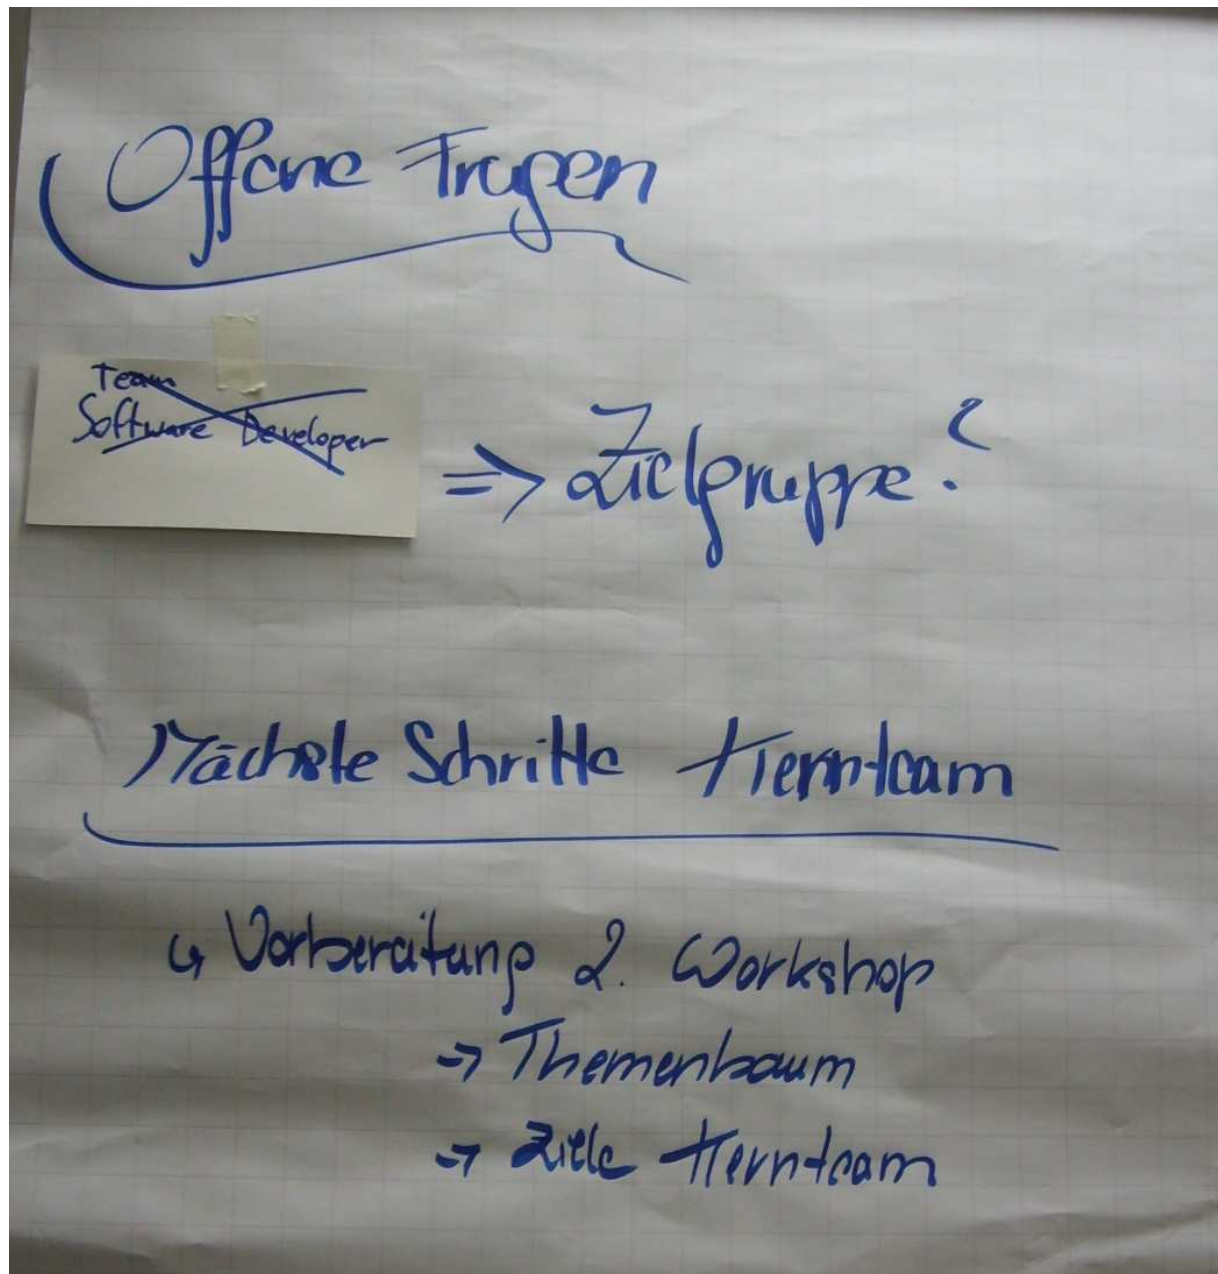 Offene Fragen
Team
Software Developer
=> Zielgruppe?
Nächste Schritte Kernteam
↳ Vorbereitung 2. Workshop
-> Themenbaum
-> Ziele Kernteam